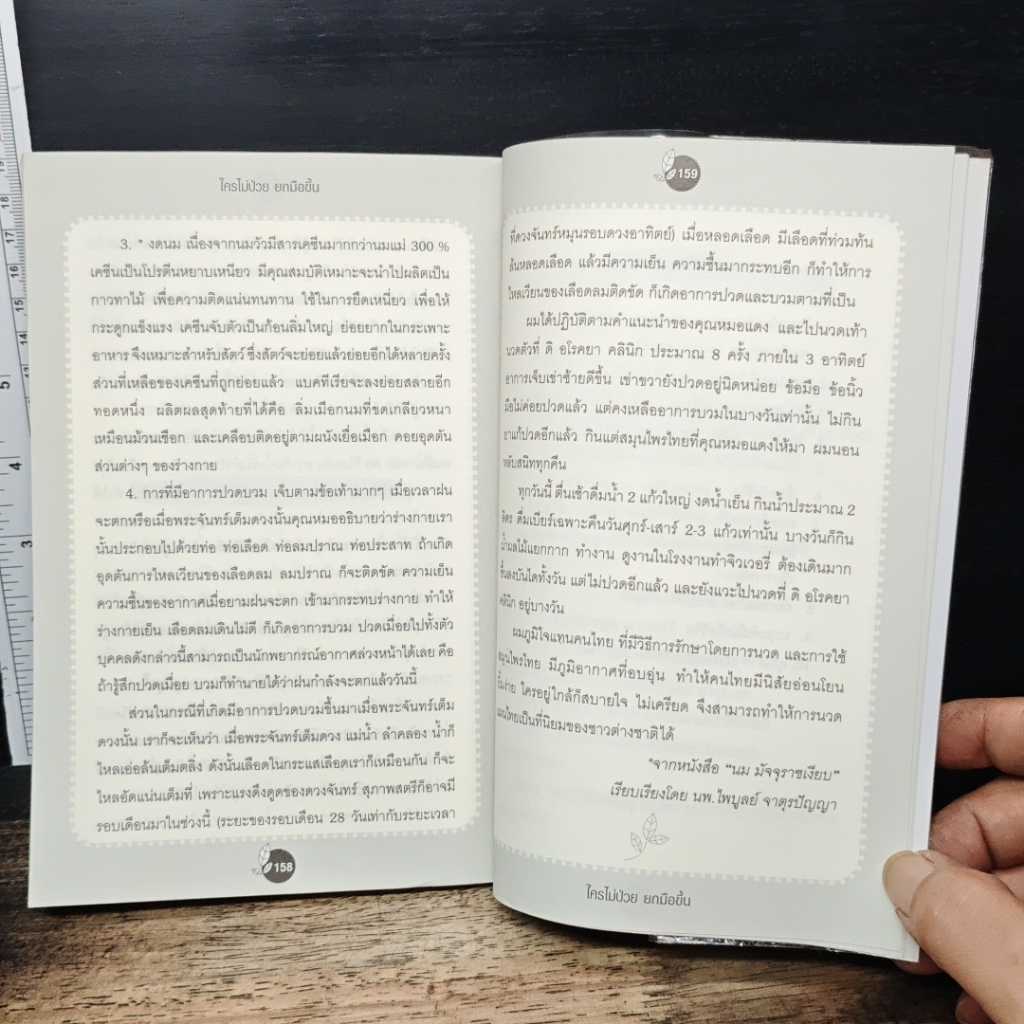 ใครไม่ป่วย ยกมือขึ้น
3. * งดนม เนื่องจากนมวัวมีสารเคซีนมากกว่านมแม่ 300 %
เคซีนเป็นโปรตีนหยาบเหนียว มีคุณสมบัติเหมาะจะนำไปผลิตเป็น
กาวทาไม้ เพื่อความติดแน่นทนทาน ใช้ในการยึดเหนี่ยว เพื่อให้
กระดูกแข็งแรง เคซีนจับตัวเป็นก้อนลิ่มใหญ่ ย่อยยากในกระเพาะ
อาหาร จึงเหมาะสำหรับสัตว์ ซึ่งสัตว์จะย่อยแล้วย่อยอีกได้หลายครั้ง
ส่วนที่เหลือของเคซีนที่ถูกย่อยแล้ว แบคทีเรียจะลงย่อยสลายอีก
ทอดหนึ่ง ผลิตผลสุดท้ายที่ได้คือ ลิ่มเมือกนมที่ขดเกลียวหนา
เหมือนม้วนเชือก และเคลือบติดอยู่ตามผนังเยื่อเมือก คอยอุดตัน
ส่วนต่างๆ ของร่างกาย
4. การที่มีอาการปวดบวม เจ็บตามข้อเท้ามากๆ เมื่อเวลาฝน
จะตกหรือเมื่อพระจันทร์เต็มดวงนั้นคุณหมออธิบายว่าร่างกายเรา
นั้นประกอบไปด้วยท่อ ท่อเลือด ท่อลมปราณ ท่อประสาท ถ้าเกิด
อุดตันการไหลเวียนของเลือดลม ลมปราณ ก็จะติดขัด ความเย็น
ความชื้นของอากาศเมื่อยามฝนจะตก เข้ามากระทบร่างกาย ทำให้
ร่างกายเย็น เลือดลมเดินไม่ดี ก็เกิดอาการบวม ปวดเมื่อยไปทั้งตัว
บุคคลดังกล่าวนี้สามารถเป็นนักพยากรณ์อากาศล่วงหน้าได้เลย คือ
ถ้ารู้สึกปวดเมื่อย บวมก็ทำนายได้ว่าฝนกำลังจะตกแล้ววันนี้
ส่วนในกรณีที่เกิดมีอาการปวดบวมขึ้นมาเมื่อพระจันทร์เต็ม
ดวงนั้น เราก็จะเห็นว่า เมื่อพระจันทร์เต็มดวง แม่น้ำ ลำคลอง น้ำก็
ไหลเอ่อล้นเต็มตลิ่ง ดังนั้นเลือดในกระแสเลือดเราก็เหมือนกัน ก็จะ
ไหลอัดแน่นเต็มที่ เพราะแรงดึงดูดของดวงจันทร์ สุภาพสตรีก็อาจมี
รอบเดือนมาในช่วงนี้ (ระยะของรอบเดือน 28 วันเท่ากับระยะเวลา
158
159
ที่ดวงจันทร์หมุนรอบดวงอาทิตย์) เมื่อหลอดเลือด มีเลือดที่ท่วมท้น
ล้นหลอดเลือด แล้วมีความเย็น ความชื้นมากระทบอีก ก็ทำให้การ
ไหลเวียนของเลือดลมติดขัด ก็เกิดอาการปวดและบวมตามที่เป็น
ผมได้ปฏิบัติตามคำแนะนำของคุณหมอแดง และไปนวดเท้า
นวดตัวที่ ดิ อโรคยา คลินิก ประมาณ 8 ครั้ง ภายใน 3 อาทิตย์
อาการเจ็บเข่าซ้ายดีขึ้น เข่าขวายังปวดอยู่นิดหน่อย ข้อมือ ข้อนิ้ว
มือไม่ค่อยปวดแล้ว แต่คงเหลืออาการบวมในบางวันเท่านั้น ไม่กิน
ยาแก้ปวดอีกแล้ว กินแต่สมุนไพรไทยที่คุณหมอแดงให้มา ผมนอน
หลับสนิททุกคืน
ทุกวันนี้ ตื่นเช้าดื่มน้ำ 2 แก้วใหญ่ งดน้ำเย็น กินน้ำประมาณ 2
ลิตร ดื่มเบียร์เฉพาะคืนวันศุกร์-เสาร์ 2-3 แก้วเท่านั้น บางวันก็กิน
น้ำผลไม้แยกกาก ทำงาน ดูงานในโรงงานทำจิวเวอรี่ ต้องเดินมาก
ขึ้นลงบันไดทั้งวัน แต่ไม่ปวดอีกแล้ว และยังแวะไปนวดที่ ดิ อโรคยา
คลินิก อยู่บางวัน
ผมภูมิใจแทนคนไทย ที่มีวิธีการรักษาโดยการนวด และการใช้
สมุนไพรไทย มีภูมิอากาศที่อบอุ่น ทำให้คนไทยมีนิสัยอ่อนโยน
ยิ้มง่าย ใครอยู่ใกล้ก็สบายใจ ไม่เครียด จึงสามารถทำให้การนวด
แผนไทยเป็นที่นิยมของชาวต่างชาติได้
*จากหนังสือ "นม มัจจุราชเงียบ"
เรียบเรียงโดย นพ.ไพบูลย์ จาตุรปัญญา
ใครไม่ป่วย ยกมือขึ้น